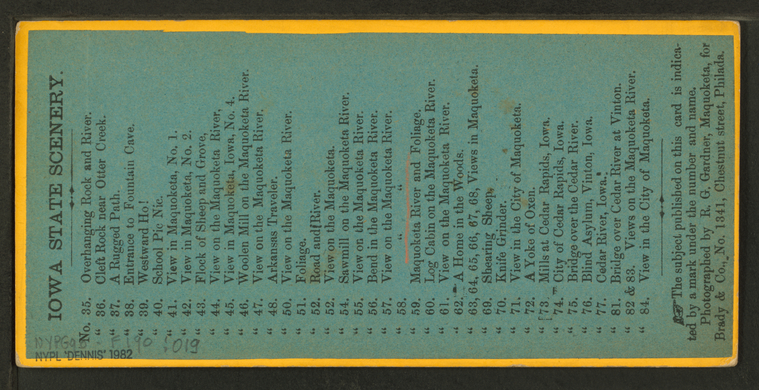 IOWA STATE SCENERY.
No. 35. Overhanging Rock and River.
" 36. Cleft Rock near Otter Creek.
" 37. A Rugged Path.
" 38. Entrance to Fountain Cave.
" 39. Westward Ho!
" 40. School Pic Nic.
" 41. View in Maquoketa, No. 1.
" 42. View in Maquoketa, No. 2.
" 43. Flock of Sheep and Grove,
" 44. View on the Maquoketa River,
" 45. View in Maquoketa, Iowa, No. 4.
" 46. Woolen Mill on the Maquoketa River.
" 47. View on the Maquoketa River.
" 48. Arkansas Traveler.
" 50. View on the Maquoketa River.
" 51. Foliage.
" 52. Road and River.
" 52. View on the Maquoketa.
" 54. Sawmill on the Maquoketa River.
" 55. View on the Maquoketa River.
" 56. Bend in the Maquoketa River.
" 57. View on the Maquoketa River.
" 58. " "
" 59. Maquoketa River and Foliage.
" 60. Log Cabin on the Maquoketa River.
" 61. View on the Maquoketa River.
" 62. A Home in the Woods.
" 63, 64, 65, 66, 67, 68, Views in Maquoketa.
" 69. Shearing Sheep.
" 70. Knife Grinder.
" 71. View in the City of Maquoketa.
" 72. A Yoke of Oxen.
" 73. Mills at Cedar Rapids, Iowa.
" 74. City of Cedar Rapids, Iowa.
" 75. Bridge over the Cedar River.
" 76. Blind Asylum, Vinton, Iowa.
" 77. Cedar River, Iowa.
" 81. Bridge over Cedar River at Vinton.
" 82 & 83. Views on the Maquoketa River.
" 84. View in the City of Maquoketa.
☞ The subject published on this card is indica-
ted by a mark under the number and name.
Photographed by R. G. Gardner, Maquoketa, for
Brady & Co., No. 1341, Chestnut street, Philada.
NYPL 'DENNIS' 1982